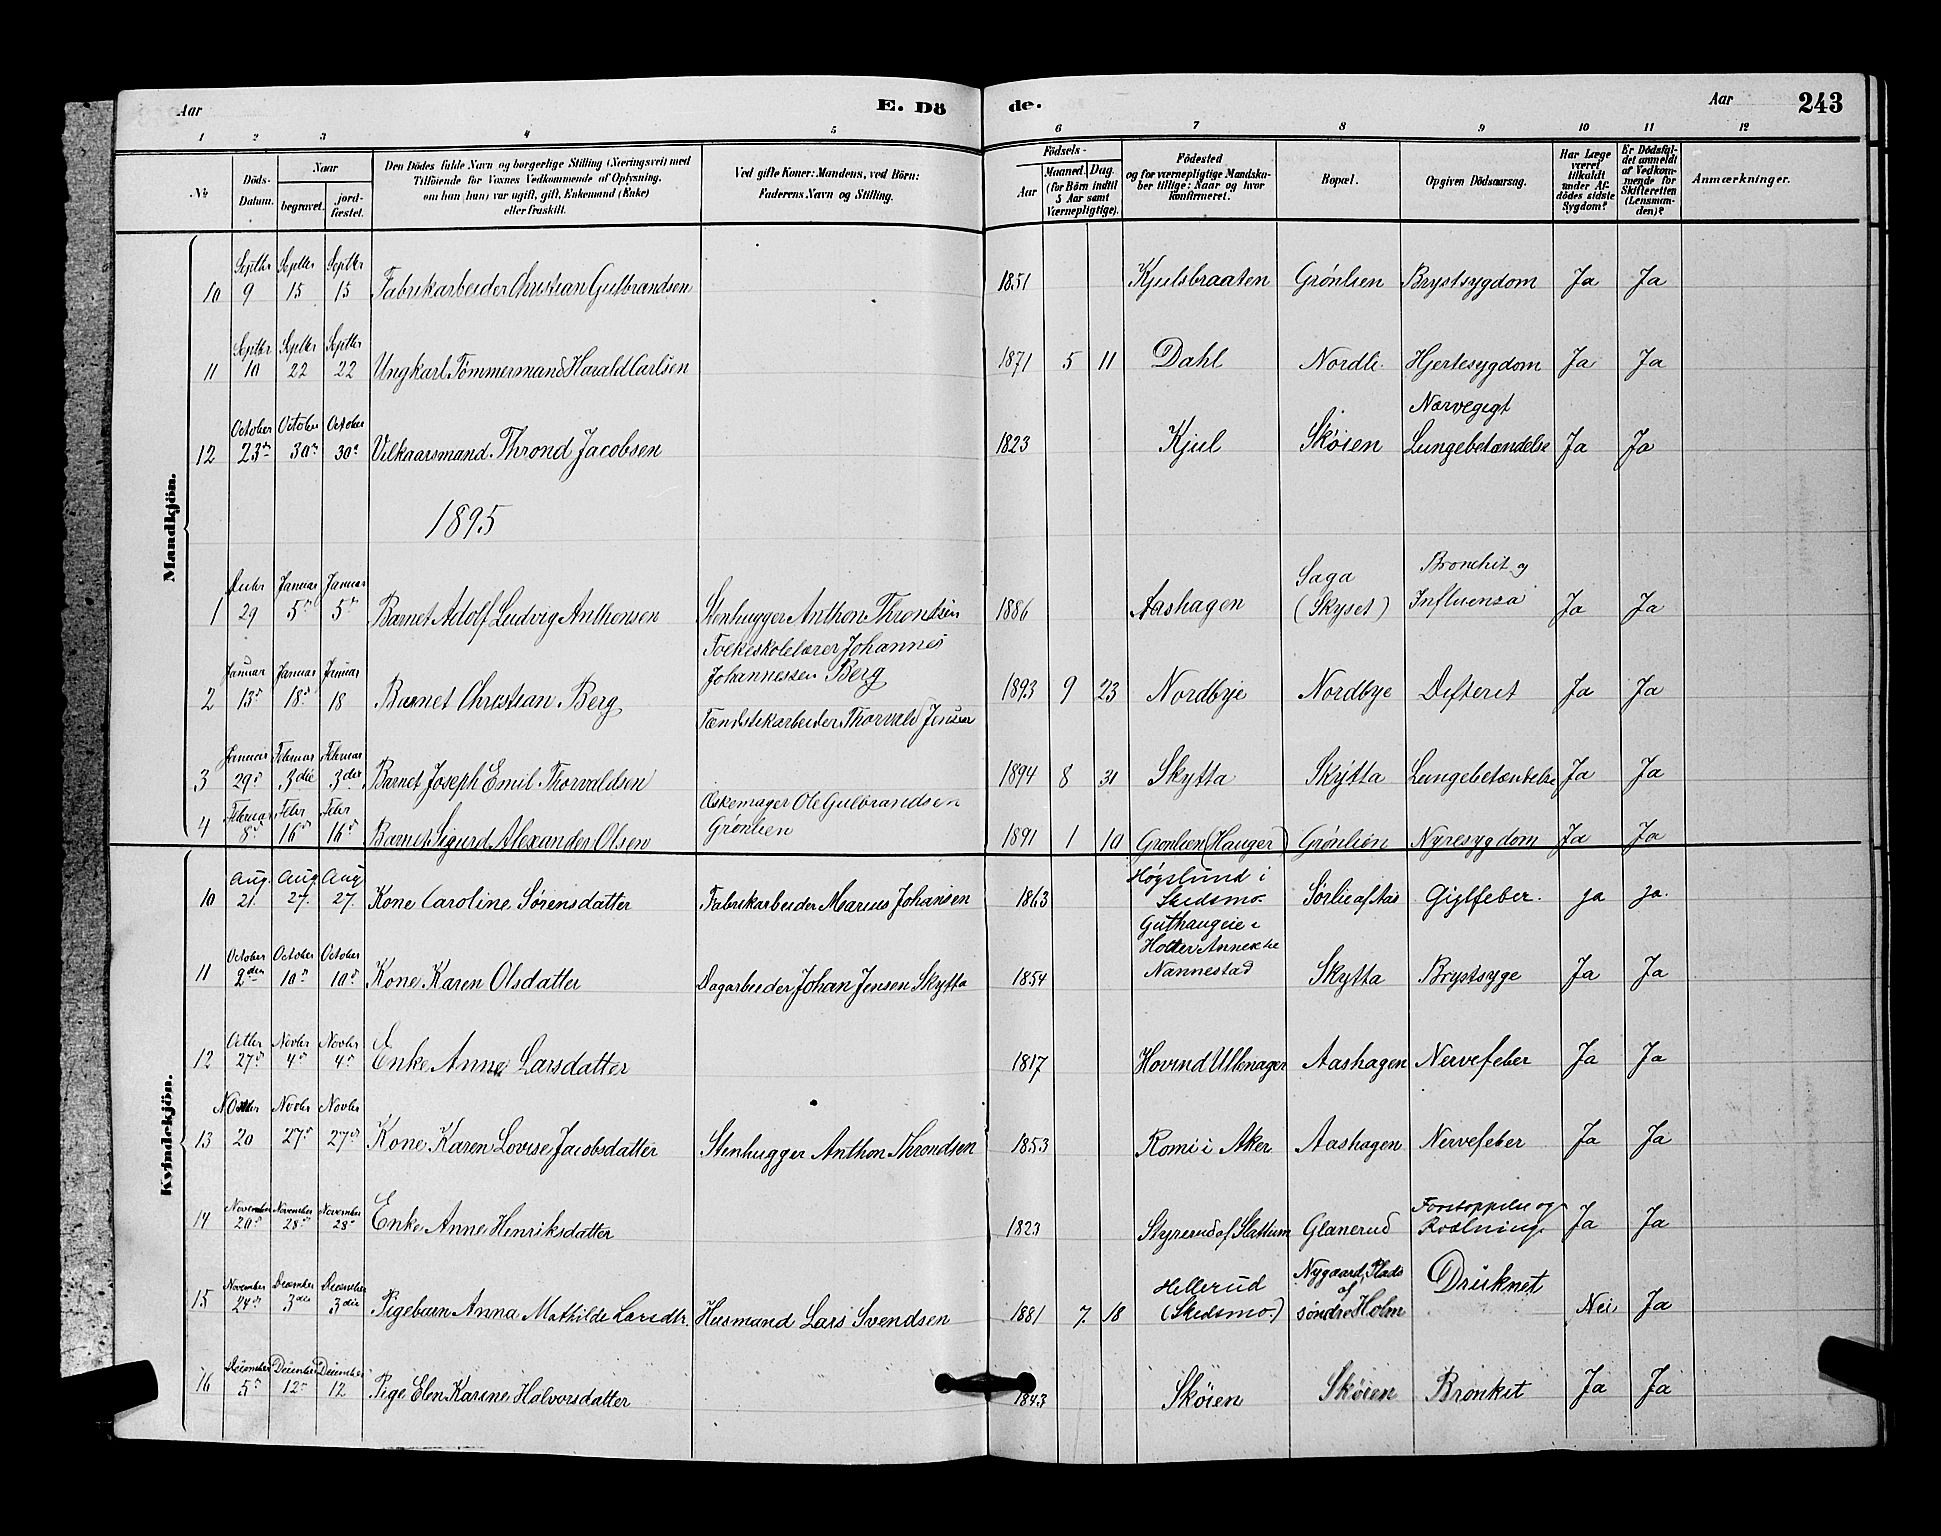 Aar
E. Dö
de.
Aar
243
1 2 3 4 5 6 7 8 9 10 11 12
No
Döds-
Datum.
Naar
begravet.
jord-
fæstet.
Den Dödes fulde Navn og borgerlige Stilling (Næringsvei) med
Tilföiende for Voxnes Vedkommende af Oplysning,
om han (hun) var ugift, gift, Enkemand (Enke)
eller fraskilt.
Ved gifte Koner: Mandens, ved Börn:
Faderens Navn og Stilling.
Födsels-
Aar
Maaned.
Dag.
(for Börn indtil
5 Aar samt
Værnepligtige).
Födested
og for værnepligtige Mandska-
ber tillige: Naar og hvor
konfirmeret.
Bopæl.
Opgiven Dödsaarsag.
Har Læge
været
tilkaldt
under Af-
dödes sidste
Sygdom?
Er Dödsfal-
det anmeldt
af Vedkom-
mende for
Skifteretten
(Lensman-
den)?
Anmærkninger.
Mandkjön.
Septbr Septbr Septbr
10 9 15 15 Fabrikarbeider Christian Gulbrandsen 1851 Kjulsbraaten Grönlien Brystsygdom Ja Ja
Septbr Septbr Septbr
11 10 22 22 Ungkarl Tømmermand Harald Carlsen 1871 5 11 Dahl Nordli Hjertesygdom Ja Ja
October October October Nærvegigt
12 23de 30te 30te Vilkaarsmand Thrond Jacobsen 1823 Kjul Skøien Lungebetændelse Ja Ja
1895
Decbr Januar Januar Saga Bronchit og
1 29 5te 5te Barnet Adolf Ludvig Anthonsen Stenhugger Anthon Throndsen 1886 Aashagen (Skyset) Influenza Ja Ja
Folkeskolelærer Johannes
Januar Januar Januar Johannessen Berg
2 13de 18de 18 Barnet Christian Berg 1893 9 23 Nordbye Nordbye Difterit Ja Ja
Tændstikarbeider Thorvald Jensen
Januar Februar Februar
3 29de 3die 3die Barnet Joseph Emil Thorvaldsen 1894 8 31 Skytta Skytta Lungebetændelse Ja Ja
Februar Febr Febr Æskemager Ole Gulbrandsen
4 8de 16de 16de Barnet Sigurd Alexander Olsen Grønlien 1891 1 10 Grønlien (Hauger) Grønlien Nyresygdom Ja Ja
Kvindekjön.
Aug. Aug Aug Høgslund i
10 21. 27. 27. Kone Caroline Sørensdatter Fabrikarbeider Marius Johansen 1863 Skedsmo. Sørlie af Aas Gigtfeber. ja ja
Guthaugeie i
October October October Holter Annex til
11 2den 10de 10de Kone Karen Olsdatter Dagarbeider Johan Jensen Skytta 1854 Nannestad Skytta Brystsyge Ja Ja
Octbr Novbr Novbr
12 27de 4de 4de Enke Anne Larsdatter 1817 Hovind Ullensager Aashagen Nervefeber Ja Ja
Novbr Novbr Novbr
13 20 27de 27de Kone Karen Lovise Jacobsdatter Stenhugger Anthon Throndsen 1853 Romi i Aker Aashagen Nervefeber Ja Ja
November November November Forstoppelse og
14 20de 28de 28de Enke Anne Henriksdatter 1823 Styrerud af Slattum Glanerud Ja Ja
November December December Hellerud Nygaard Plads af
15 24de 3die 3die Pigebarn Anna Mathilde Larsdtr. Husmand Lars Svendsen 1881 7. 18 (Skedsmo) søndre Holm Druknet Nei Ja
December December December
16 5te 12te 12 Pige Elen Karine Halvorsdatter 1843 Skøien Skøien Bronkit Ja Ja